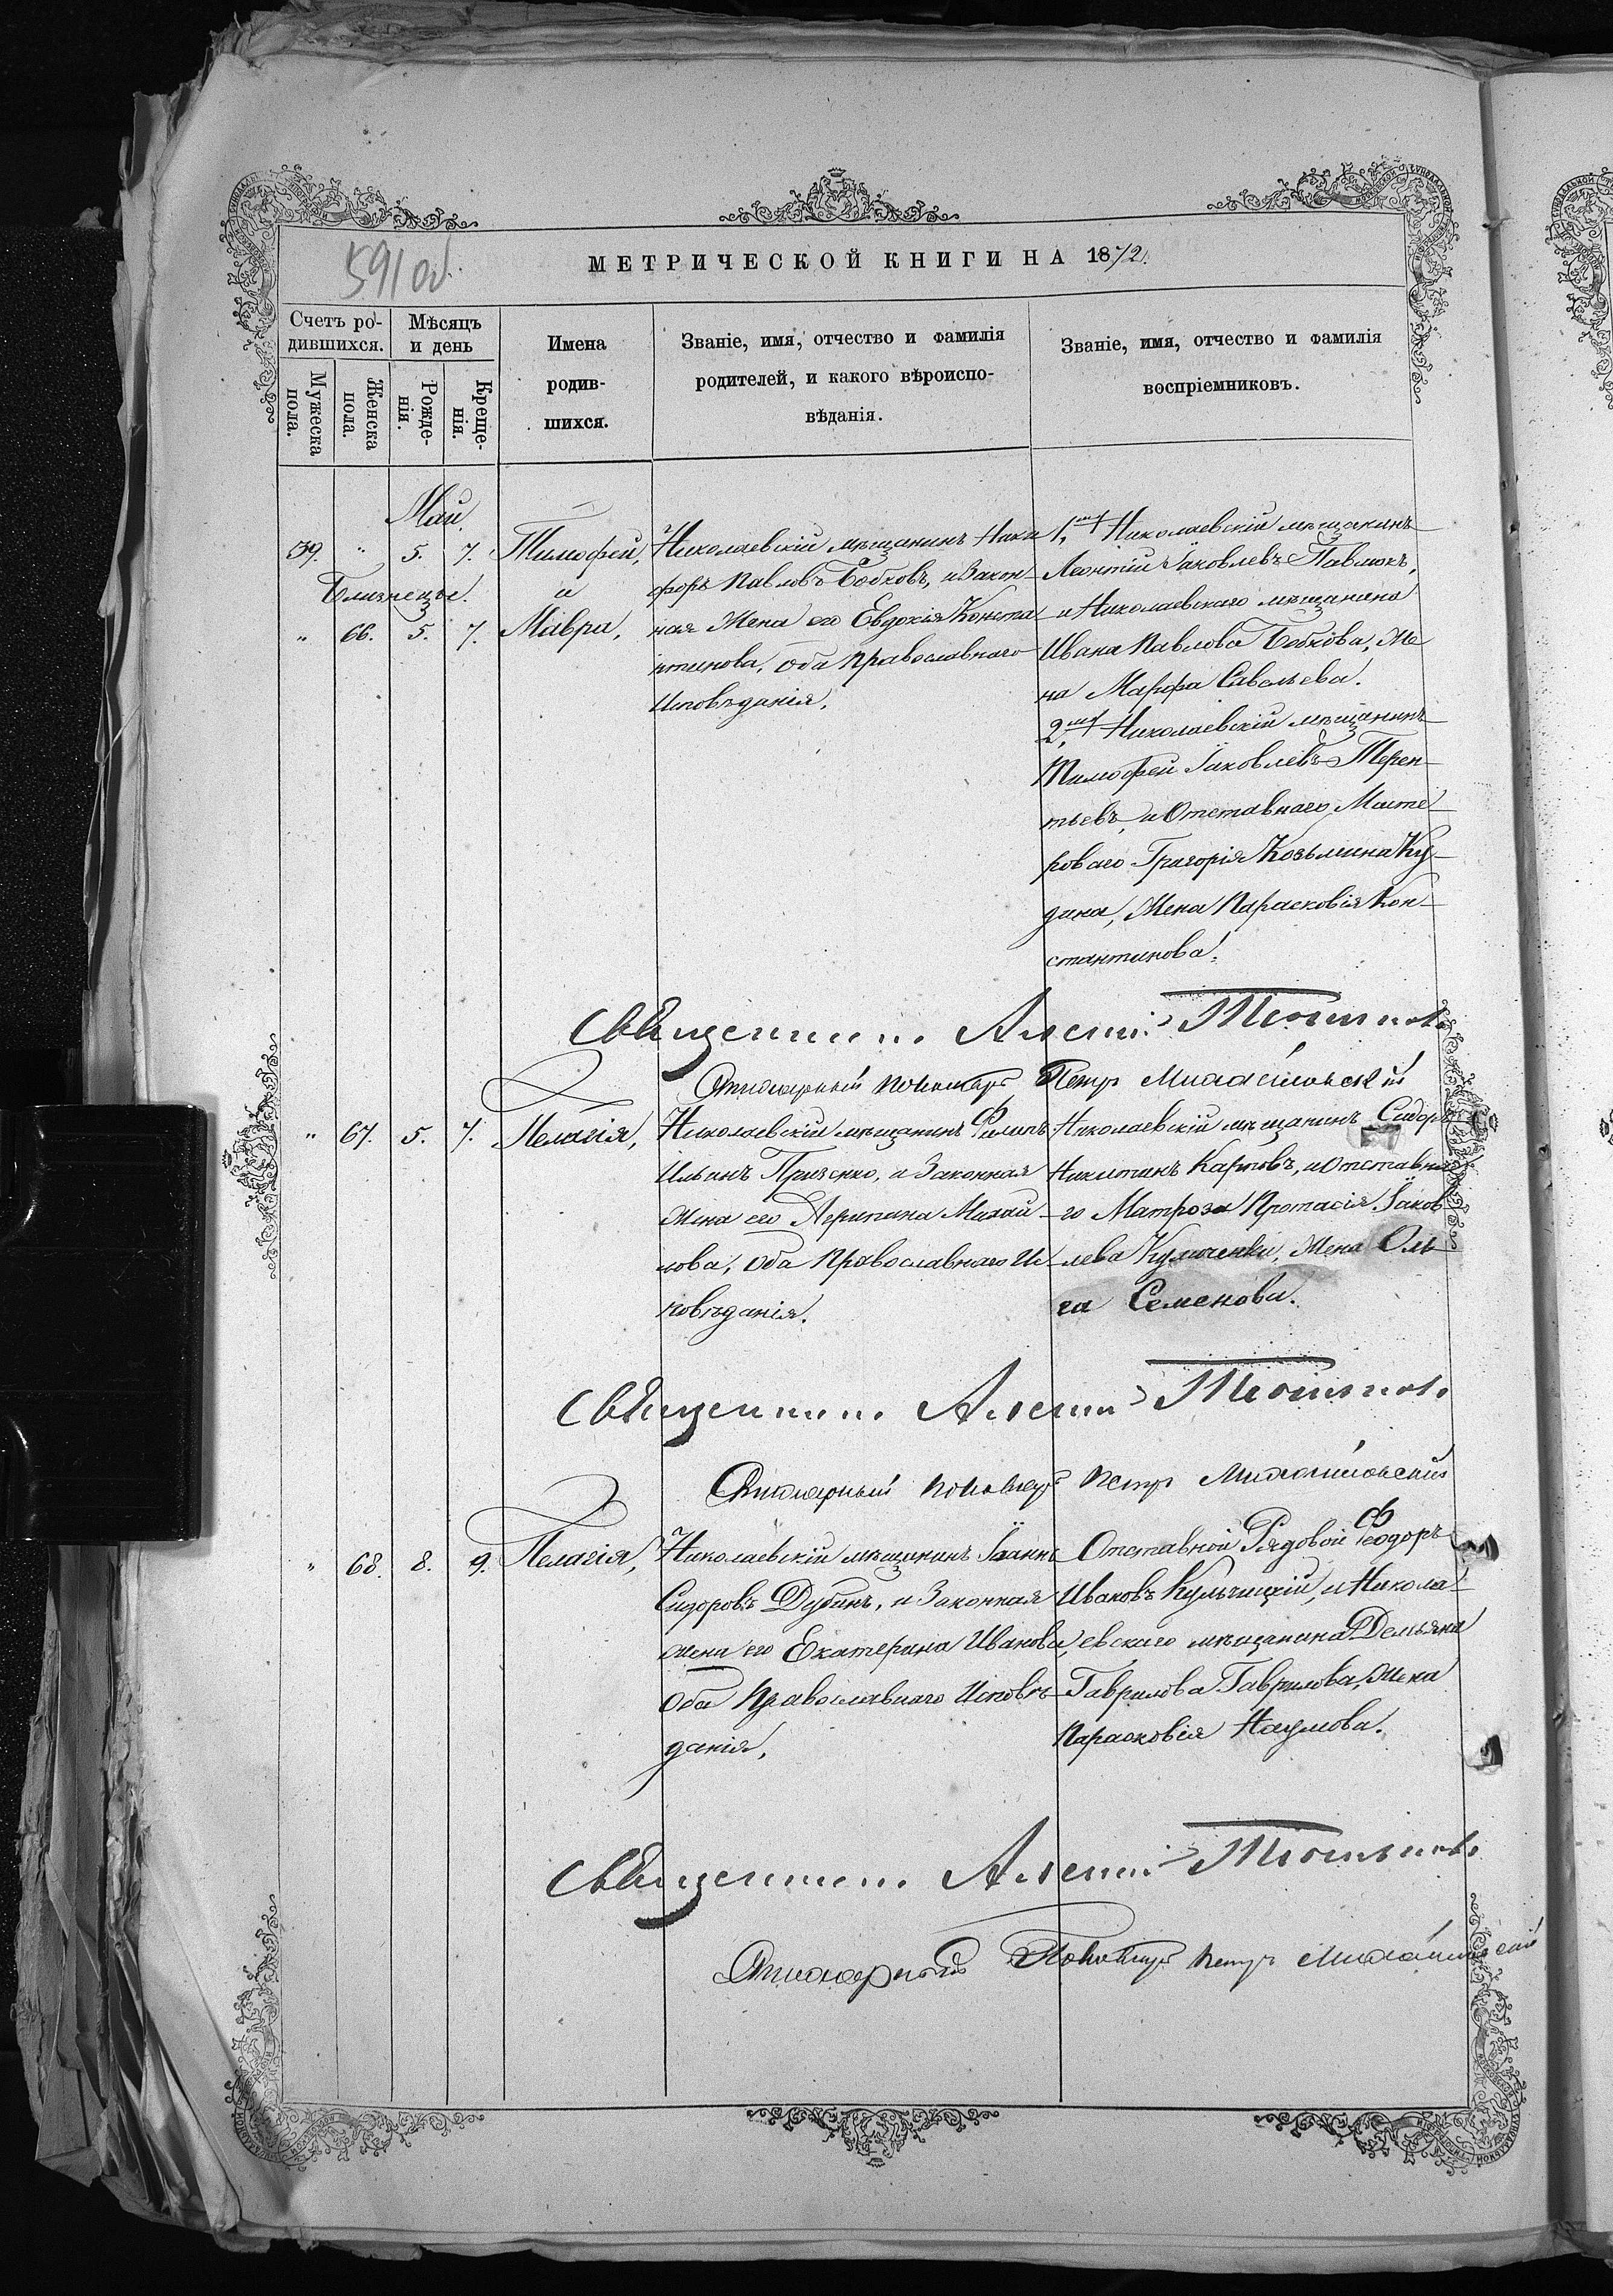 591 об.
МЕТРИЧЕСКОЙ КНИГИ НА 1872.
Счетъ ро-
дившихся.
Мѣсяцъ
и день
Мужеска
пола.
Женска
пола.
Рожде-
нія.
Креще-
нія.
Имена
родив-
шихся.
Званіе, имя, отчество и фамилія
родителей, и какого вѣроиспо-
вѣданія.
Званіе, имя, отчество и фамилія
воспріемниковъ.
Май.
59. " 5. 7. Тимофей,
Близнецы. и
" 66. 5. 7. Мавра,
Николаевскій мѣщанинъ Ники
форъ Павловъ Бобковъ, и Закон-
ная Жена его Евдокія Конста
нтинова, Оба Православнаго
Исповѣданія.
1, Николаевскій мѣщанинъ
Леонтій Іаковлевъ Павлюкъ,
и Николаевскаго мѣщанина
Ивана Павлова Бобкова, Же
на Марфа Савельева.
2, Николаевскій мѣщанинъ
Тимофей Іаковлевъ Терен-
тьевъ, и Отставнаго Масте
роваго Григорія Козьмина Ку-
дина, Жена Парасковія Кон-
стантинова.
Священник Алексій
Пономарь Петръ
" 67. 5. 7. Пелагія,
Николаевскій мѣщанинъ Филипъ
Ильинъ Призенко, и Законная
Жена его Агрипина Михай-
лова, Оба Православнаго Ис-
повѣданія.
Николаевскій мѣщанинъ Сидоръ
Никитинъ Карповъ, и Отставна
го Матроза Протасія Іаков
лева Куличенки, Жена Оль
га Семенова.
Священник Алексій
Пономарь Петръ
" 68. 8. 9. Пелагія,
Николаевскій мѣщанинъ Іоаннъ
Сидоровъ Дубинъ, и Законная
жена его Екатерина Иванова,
Оба Православнаго Исповѣ-
данія,
Отставной Рядовой Ѳеодоръ
Ивановъ Кульчицкій, и Никола-
евскаго мѣщанина Демьяна
Гаврилова Гаврилова, Жена
Парасковія Наумова.
Священник Алексій
Пономарь Петръ